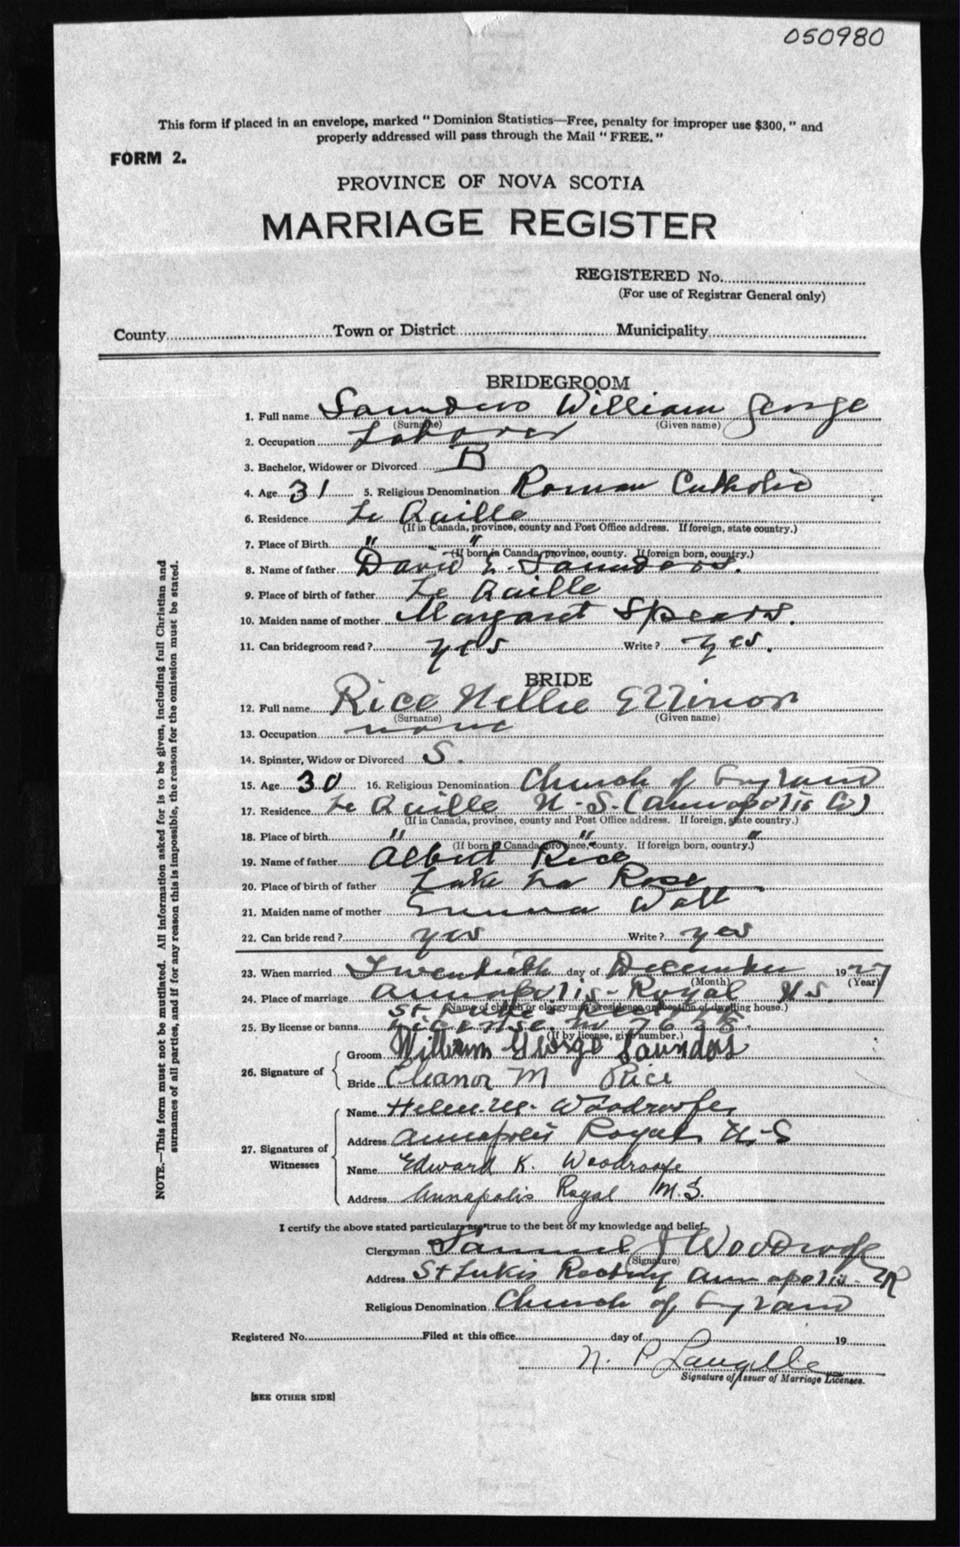 050980
This form if placed in an envelope, marked "Dominion Statistics—Free, penalty for improper use $300," and
properly addressed will pass through the Mail "FREE."
FORM 2.
PROVINCE OF NOVA SCOTIA
MARRIAGE REGISTER
REGISTERED No.
(For use of Registrar General only)
County Town or District Municipality
BRIDEGROOM
1. Full name Saunders William George
(Surname) (Given name)
2. Occupation Laborer
3. Bachelor, Widower or Divorced B
4. Age 31 5. Religious Denomination Roman Catholic
6. Residence Le Quille
(If in Canada, province, county and Post Office address. If foreign, state country.)
7. Place of Birth " "
(If born in Canada, province, county. If foreign born, country.)
8. Name of father David Saunders.
9. Place of birth of father Le Quille
10. Maiden name of mother Margaret Spears.
11. Can bridegroom read? yes Write? yes.
BRIDE
12. Full name Rice Nellie Ellinor
(Surname) (Given name)
13. Occupation none
14. Spinster, Widow or Divorced S.
15. Age 30 16. Religious Denomination Church of England
17. Residence Le Quille N-S. (Annapolis Co)
(If in Canada, province, county and Post Office address. If foreign, state country.)
18. Place of birth " " "
(If born in Canada, province, county. If foreign born, country.)
19. Name of father Albert Rice
20. Place of birth of father Lake La Rose
21. Maiden name of mother Emma Watt
22. Can bride read? yes Write? yes
23. When married Twentieth day of December 1927
(Month) (Year)
24. Place of marriage Annapolis-Royal N.S.
(Name of church or clergyman's residence or location of dwelling house.)
St Luke's
25. By license or banns License no
(If by license, give number.)
26. Signature of
Groom William George Saunders
Bride Eleanor M Rice
27. Signatures of Witnesses
Name Helen M. Woodroofe
Address Annapolis Royal N-S
Name Edward K. Woodroofe
Address Annapolis Royal N.S.
I certify the above stated particulars are true to the best of my knowledge and belief.
Clergyman Samuel J Woodroofe
(Signature)
Address St Lukes Rectory Annapolis-R
Religious Denomination Church of England
Registered No. Filed at this office day of 19
N. P.
Signature of Issuer of Marriage Licenses.
[SEE OTHER SIDE]
NOTE.—This form must not be mutilated. All information asked for is to be given, including full Christian and
surnames of all parties, and if for any reason this is impossible, the reason for the omission must be stated.